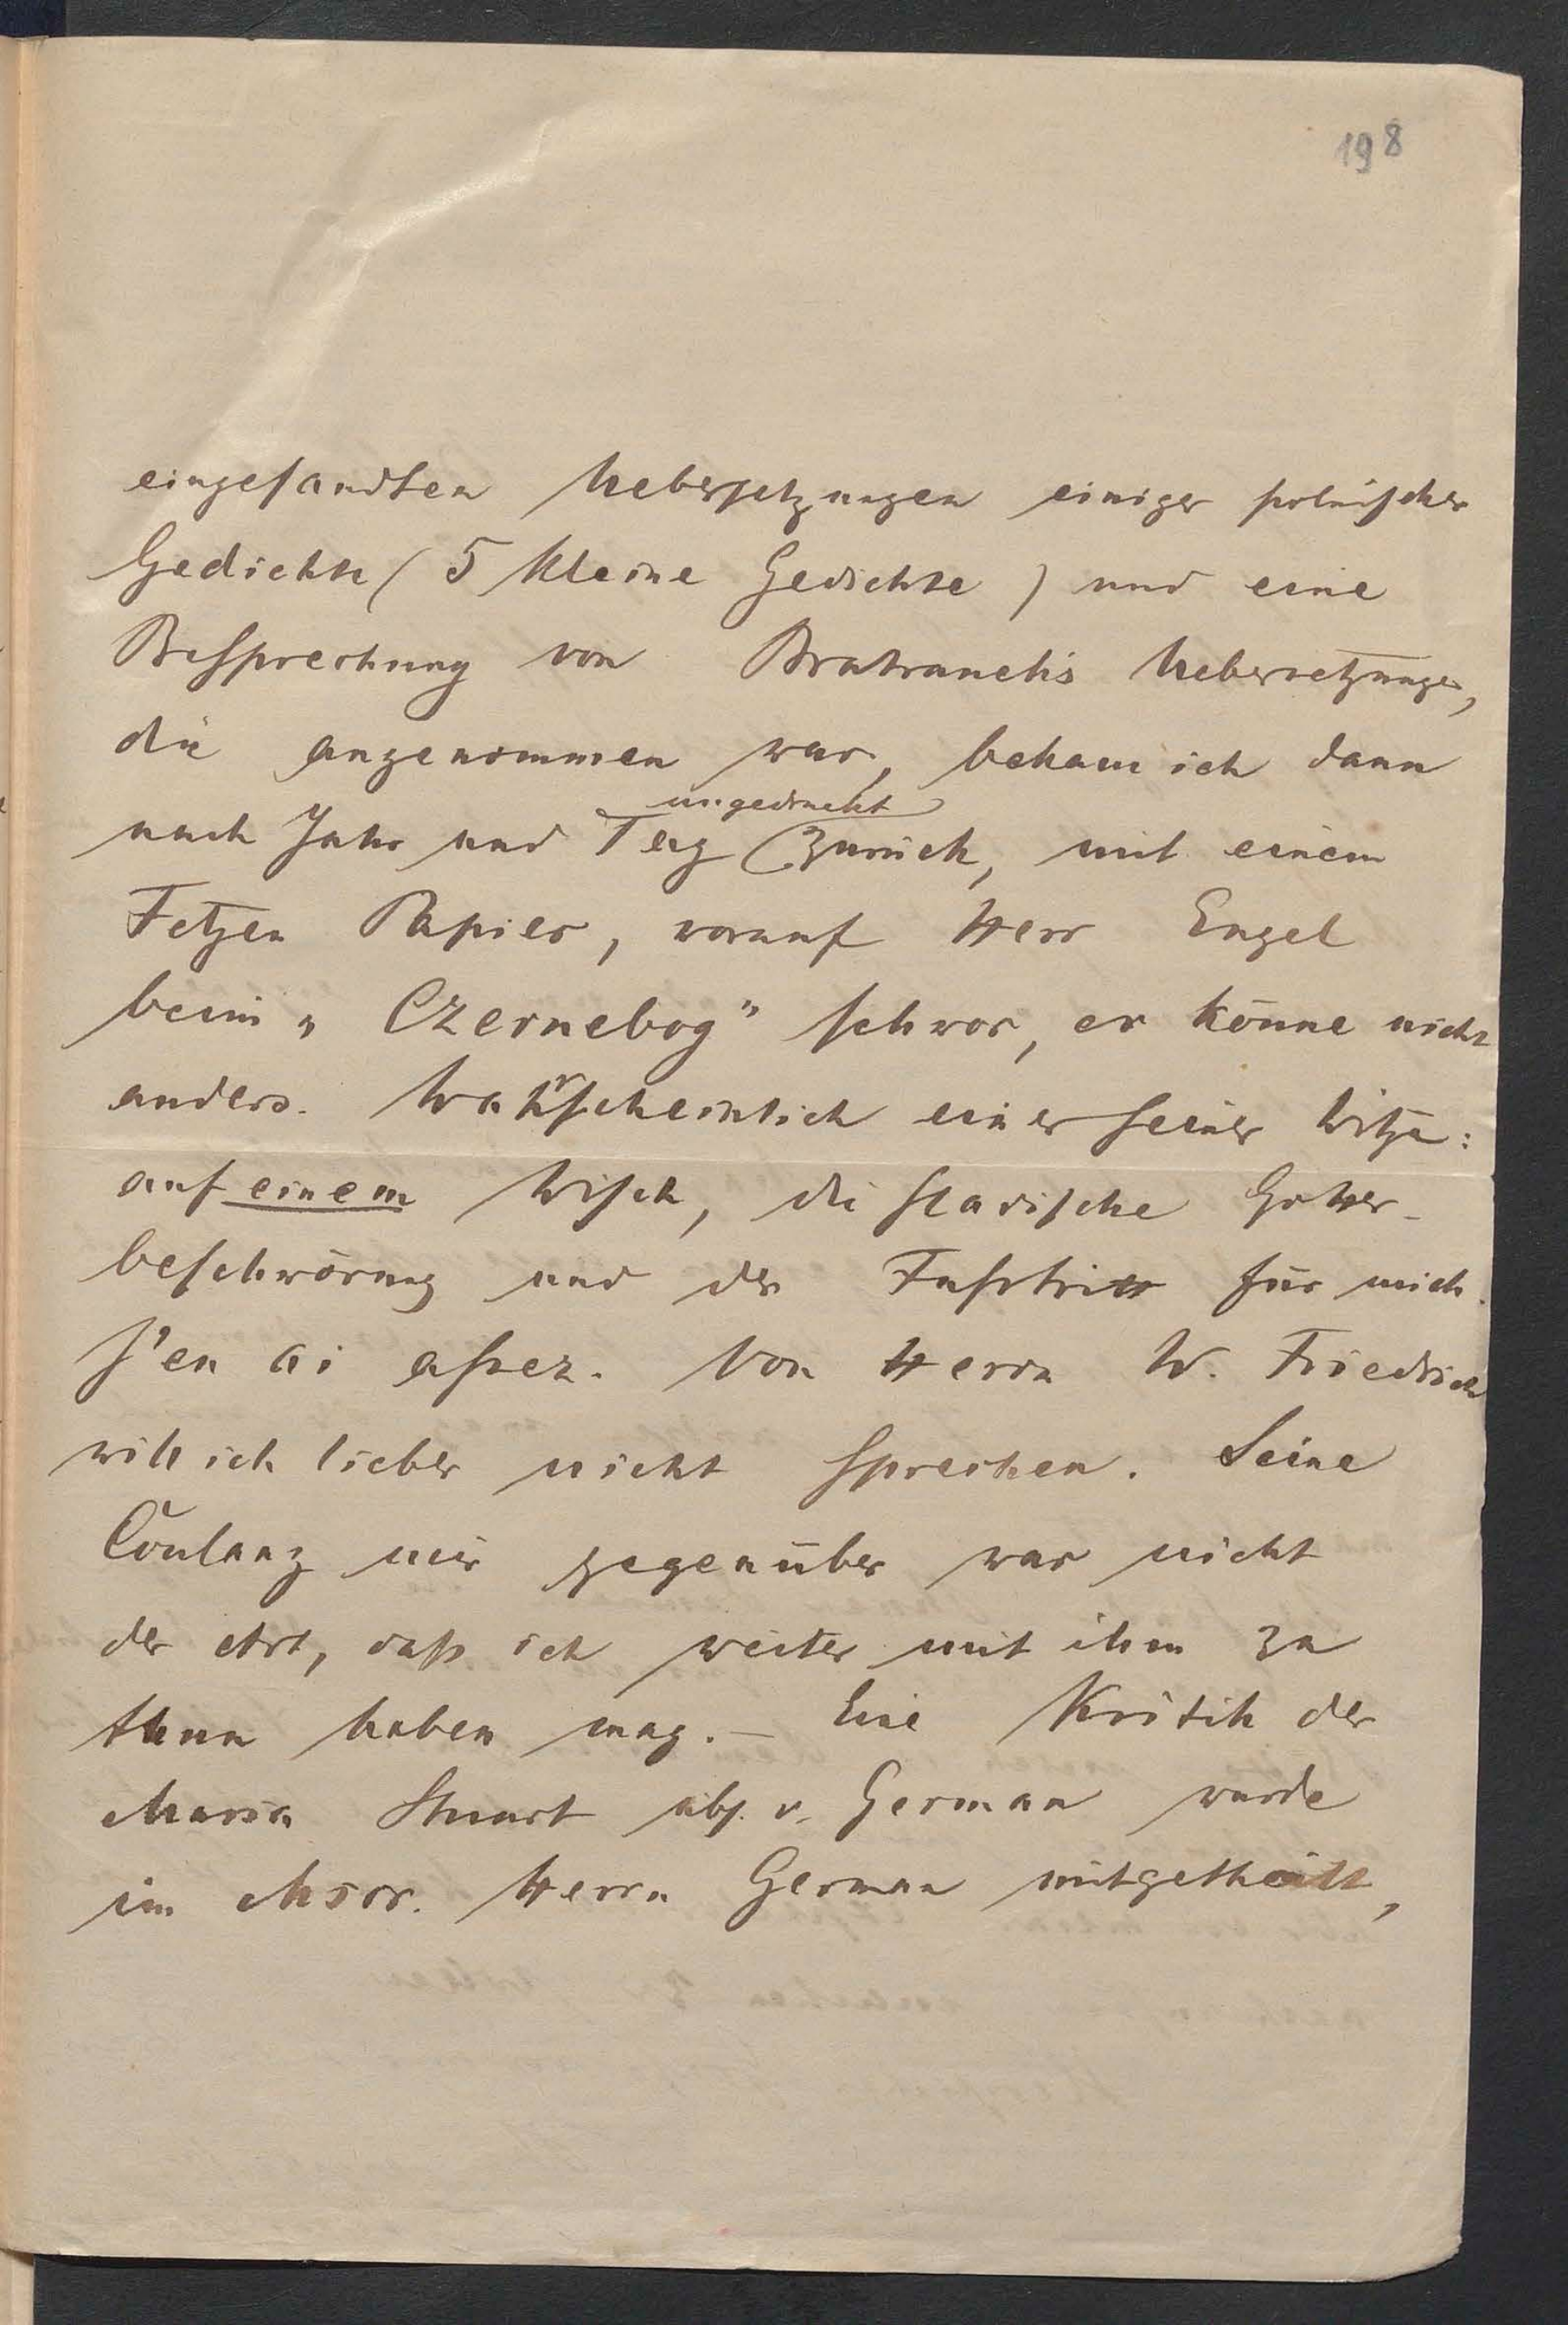 198
eingesandten Uebersetzungen einiger polnischer
Gedichte (5 kleine Gedichte) und eine
Besprechung von Bratranek's Uebersetzungen,
die angenommen war, bekam ich dann
ungedruckt
nach Jahr und Tag zurück, mit einem
Fetzen Papier, worauf Herr Engel
beim „Czernebog" schwor, er könne nicht
anders. Wahrscheinlich einer seiner Witze:
auf einem Wisch, die slavische Götter-
beschwörung und der Fusstritt für mich.
J'en ai assez. Von Herrn W. Friedrich
will ich lieber nicht sprechen. Seine
Coulanz mir gegenüber war nicht
der Art, dass ich weiter mit ihm zu
thun haben mag. — Eine Kritik der
Maria Stuart übs. v. German wurde
im Mscr. Herrn German mitgetheilt,